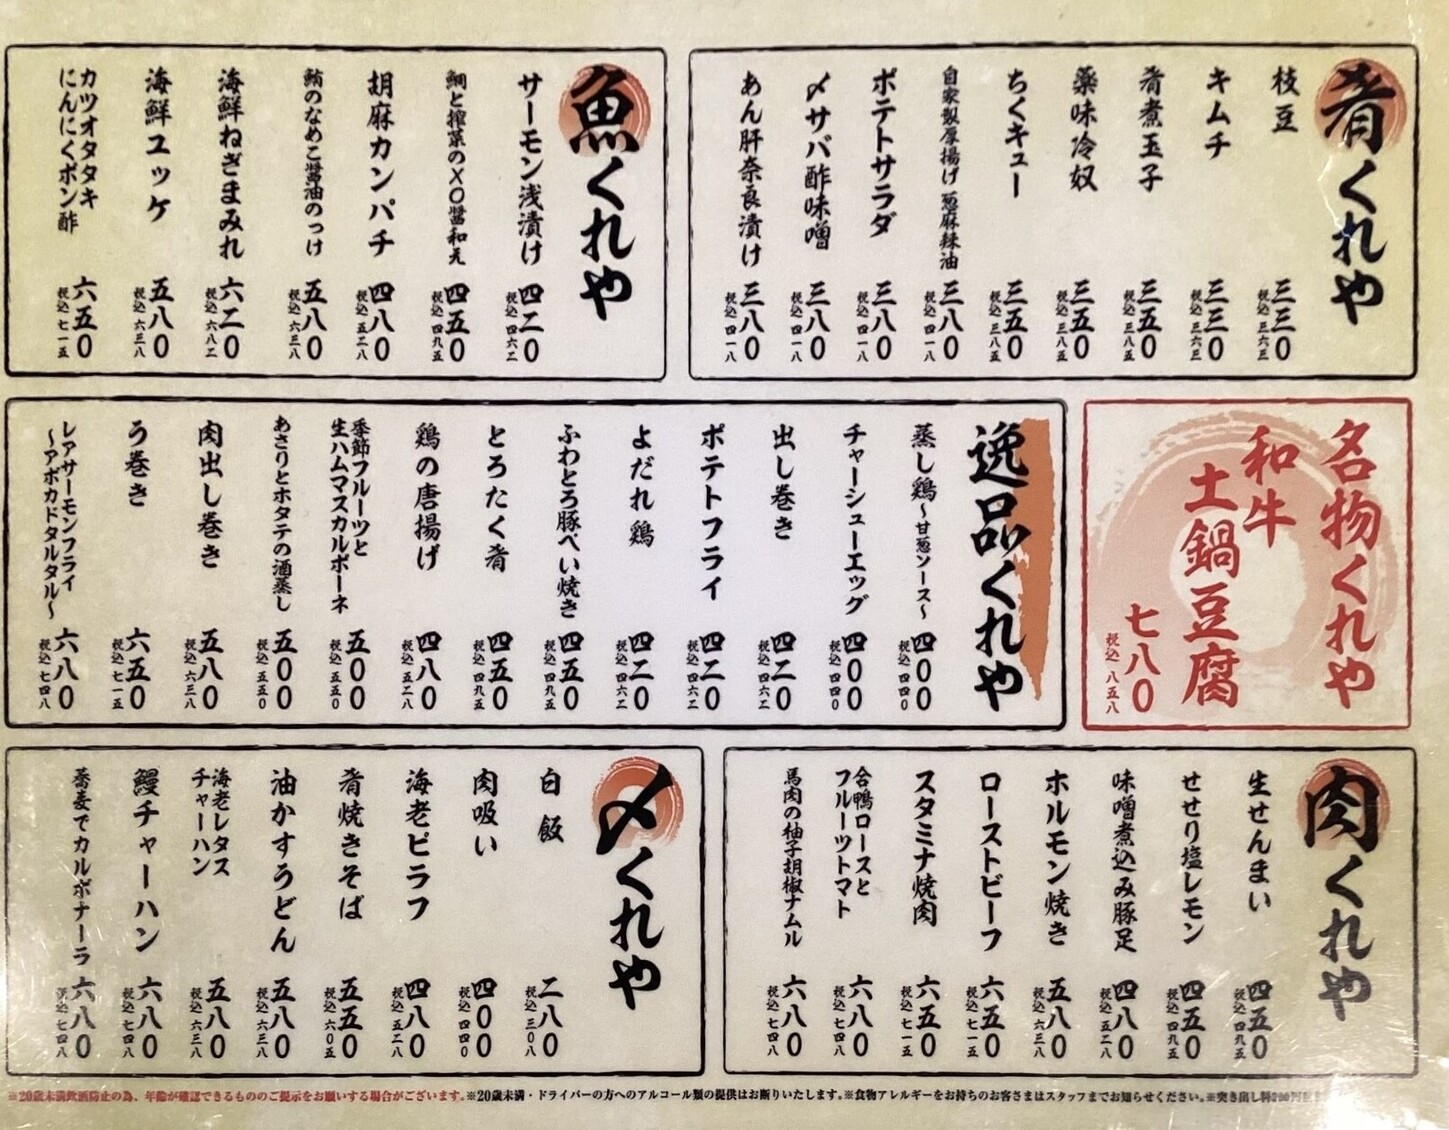 肴くれや
枝豆
三三〇
税込 三六三
キムチ
三三〇
税込 三六三
肴煮玉子
三五〇
税込 三八五
薬味冷奴
三五〇
税込 三八五
ちくキュー
三五〇
税込 三八五
自家製厚揚げ 葱麻辣油
三八〇
税込 四一八
ポテトサラダ
三八〇
税込 四一八
〆サバ酢味噌
三八〇
税込 四一八
あん肝奈良漬け
三八〇
税込 四一八
魚くれや
サーモン浅漬け
四二〇
税込 四六二
鯛と搾菜のXO醤和え
四五〇
税込 四九五
胡麻カンパチ
四八〇
税込 五二八
鮪のなめこ醤油のっけ
五八〇
税込 六三八
海鮮ねぎまみれ
六二〇
税込 六八二
海鮮ユッケ
五八〇
税込 六三八
カツオタタキ
にんにくポン酢
六五〇
税込 七一五
名物くれや
和牛
土鍋豆腐
七八〇
税込 八五八
逸品くれや
蒸し鶏〜甘葱ソース〜
四〇〇
税込 四四〇
チャーシューエッグ
四〇〇
税込 四四〇
出し巻き
四二〇
税込 四六二
ポテトフライ
四二〇
税込 四六二
よだれ鶏
四二〇
税込 四六二
ふわとろ豚ぺい焼き
四五〇
税込 四九五
とろたく肴
四五〇
税込 四九五
鶏の唐揚げ
四八〇
税込 五二八
季節フルーツと
生ハムマスカルポーネ
五〇〇
税込 五五〇
あさりとホタテの酒蒸し
五〇〇
税込 五五〇
肉出し巻き
五八〇
税込 六三八
う巻き
六五〇
税込 七一五
レアサーモンフライ
〜アボカドタルタル〜
六八〇
税込 七四八
肉くれや
生せんまい
四五〇
税込 四九五
せせり塩レモン
四五〇
税込 四九五
味噌煮込み豚足
四八〇
税込 五二八
ホルモン焼き
五八〇
税込 六三八
ローストビーフ
六五〇
税込 七一五
スタミナ焼肉
六五〇
税込 七一五
合鴨ロースと
フルーツトマト
六八〇
税込 七四八
馬肉の柚子胡椒ナムル
六八〇
税込 七四八
〆くれや
白飯
二八〇
税込 三〇八
肉吸い
四〇〇
税込 四四〇
海老ピラフ
四八〇
税込 五二八
肴焼きそば
五五〇
税込 六〇五
油かすうどん
五八〇
税込 六三八
海老レタス
チャーハン
五八〇
税込 六三八
鰻チャーハン
六八〇
税込 七四八
蕎麦でカルボナーラ
六八〇
税込 七四八
※20歳未満飲酒防止の為、年齢が確認できるもののご提示をお願いする場合がございます。※20歳未満・ドライバーの方へのアルコール類の提供はお断りいたします。※食物アレルギーをお持ちのお客さまはスタッフまでお知らせください。※突き出し料